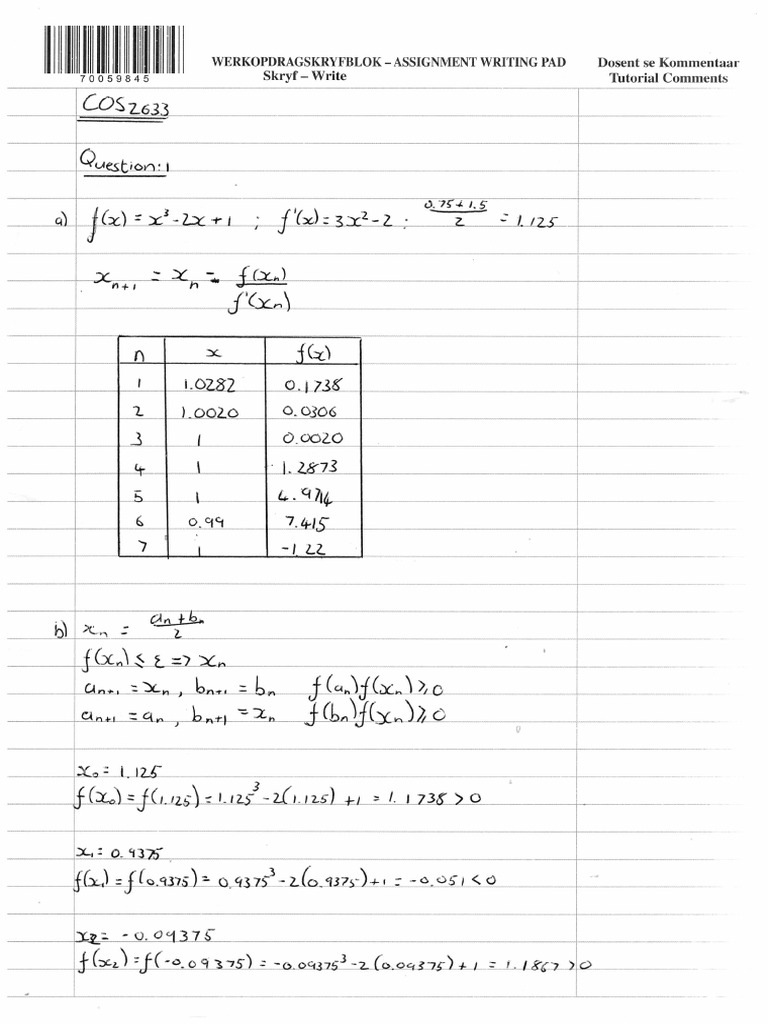 70059845
WERKOPDRAGSKRYFBLOK – ASSIGNMENT WRITING PAD
Skryf – Write
Dosent se Kommentaar
Tutorial Comments
COS2633
Question:1
a) f(x) = x³-2x+1 ; f'(x)=3x²-2 : (0.75+1.5)/2 = 1.125
xₙ₊₁ = xₙ - f(xₙ)/f'(xₙ)
n x f(x)
1 1.0282 0.1738
2 1.0020 0.0306
3 1 0.0020
4 1 1.2873
5 1 4.9714
6 0.99 7.415
7 1 -1.22
b) xₙ = (aₙ+bₙ)/2
f(xₙ) ≤ ε => xₙ
aₙ₊₁ = xₙ, bₙ₊₁ = bₙ f(aₙ)f(xₙ) ≥ 0
aₙ₊₁ = aₙ, bₙ₊₁ = xₙ f(bₙ)f(xₙ) ≥ 0
x₀ = 1.125
f(x₀) = f(1.125) = 1.125³ -2(1.125) +1 = 1.1738 > 0
x₁ = 0.9375
f(x₁) = f(0.9375) = 0.9375³ -2(0.9375)+1 = -0.051 < 0
x₂ = -0.09375
f(x₂) = f(-0.09375) = -0.09375³ -2(0.09375)+1 = 1.1867 > 0